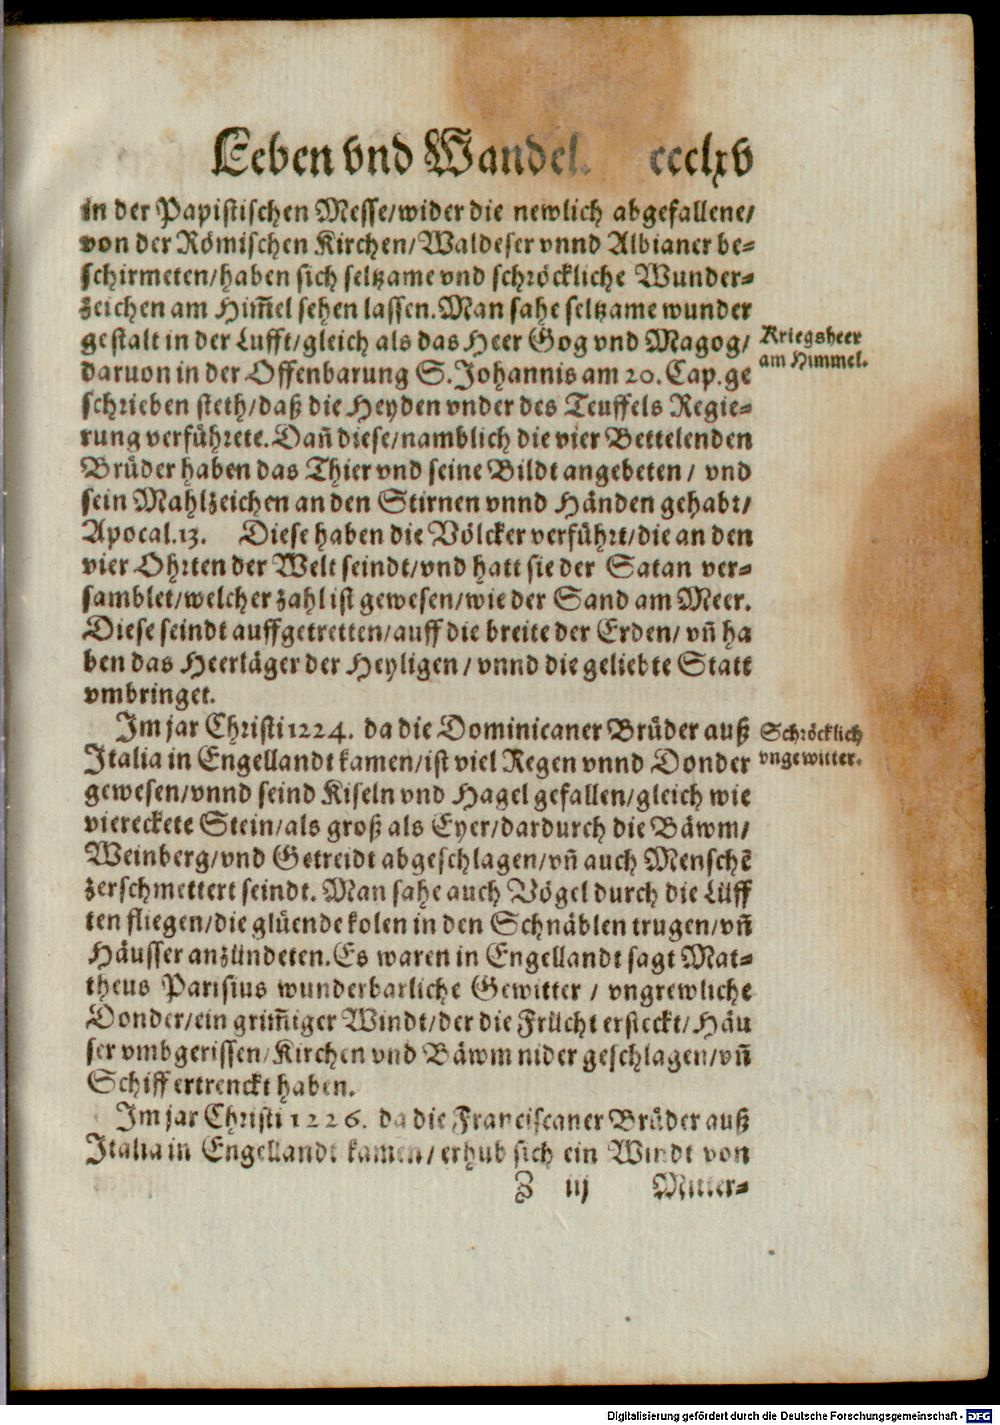 Leben vnd Wandel. ccclxv
in der Papistischen Messe/wider die newlich abgefallene/
von der Römischen Kirchen/Waldeser vnnd Albianer be-
schirmeten/haben sich seltzame vnd schröckliche Wunder-
zeichen am Him̃el sehen lassen. Man sahe seltzame wunder
gestalt in der Lufft/gleich als das Heer Gog vnd Magog/
Kriegsheer
am Himmel.
daruon in der Offenbarung S. Johannis am 20. Cap. ge
schrieben steth/daß die Heyden vnder des Teuffels Regie-
rung verführete. Dañ diese/namblich die vier Bettelenden
Brüder haben das Thier vnd seine Bildt angebeten/ vnd
sein Mahlzeichen an den Stirnen vnnd Händen gehabt/
Apocal. 13. Diese haben die Völcker verführt/die an den
vier Ohrten der Welt seindt/vnd hatt sie der Satan ver-
samblet/welcher zahl ist gewesen/wie der Sand am Meer.
Diese seindt auffgetretten/auff die breite der Erden/ vñ ha
ben das Heerläger der Heyligen/ vnnd die geliebte Statt
vmbringet.
Im jar Christi 1224. da die Dominicaner Brüder auß
Schröcklich
vngewitter.
Italia in Engellandt kamen/ist viel Regen vnnd Donder
gewesen/vnnd seind Kiseln vnd Hagel gefallen/gleich wie
viereckete Stein/als groß als Eyer/dardurch die Bäwm/
Weinberg/vnd Getreidt abgeschlagen/vñ auch Menschẽ
zerschmettert seindt. Man sahe auch Vögel durch die Lüff
ten fliegen/die glüende kolen in den Schnäblen trugen/vñ
Häusser anzündeten. Es waren in Engellandt sagt Mat-
theus Parisius wunderbarliche Gewitter/ vngrewliche
Donder/ein grim̃iger Windt/der die Frücht ersteckt/Häu
ser vmbgerissen/Kirchen vnd Bäwm nider geschlagen/vñ
Schiff ertrenckt haben.
Im jar Christi 1226. da die Franciscaner Brüder auß
Italia in Engellandt kamen/ erhub sich ein Windt von
Z iij Mitter-
Digitalisierung gefördert durch die Deutsche Forschungsgemeinschaft - DFG